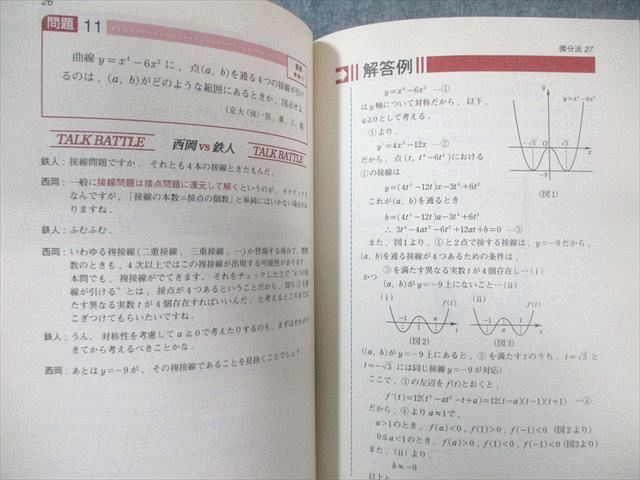 26
問題 11
曲線 y=x⁴−6x² に，点(a, b)を通る4つの接線が引け
るのは，(a, b)がどのような範囲にあるときか，図示せよ．
(京大(後)・医，薬，工，
TALK BATTLE 西岡 vs 鉄人 TALK BATTLE
鉄人：接線問題ですか．それとも4本の接線ときたもんだ．
西岡：一般に接線問題は接点問題に還元して解くというのが，タクティクス
なんですが，「接線の本数=接点の個数」と単純にはいかない場合が
りますね．
鉄人：ふむふむ．
西岡：いわゆる複接線(二重接線，三重接線，…)が登場する場合で，整関
数のときも，4次以上ではこの複接線が出現する可能性があります．
本問でも，複接線がでてきます．それをチェックした上で“4つの接
線が引ける”とは，接点が4つあるということだから，
たす異なる実数 t が4個存在すればいいんだ，と考えるところまで
こぎつけてもらいたいですね．
鉄人：うん．対称性を考慮して a≧0 で考えたりするのも，まずはそれが
きてから考えるべきことかな．
西岡：あとは y=−9 が，その複接線であることを見抜くことでしょう．
微分法 27
解答例
y=x⁴−6x² …①
は y 軸について対称だから，以下，
a≧0 として考える．
①より，
y′=4x³−12x …②
だから，点(t, t⁴−6t²)における
①の接線は
y=(4t³−12t)x−3t⁴+6t²
これが(a, b)を通るとき
b=(4t³−12t)a−3t⁴+6t²
∴ 3t⁴−4at³−6t²+12at+b=0 …③
y y=x⁴−6x²
−√3 O √3 x
−9
(図1)
また，図1より，①と2点で接する接線は，y=−9 だから，
(a, b)を通る接線が4つあるための条件は，
③を満たす異なる実数 t が4個存在し…(ⅰ)
かつ
(a, b)が y=−9 上にないこと…(ⅱ)
(ⅰ) f(t) (ⅱ) f(t)
−1 1 a −1 a 1
(図2) (図3)
((a, b)が y=−9 上にあると，③を満たす t のうち，t=√3 と
t=−√3 には同じ接線 y=−9 が対応)
ここで，③の左辺を f(t)とおくと，
f′(t)=12(t³−at²−t+a)=12(t−a)(t−1)(t+1) …④
だから，④より a≒1 で，
a>1のとき，f(a)<0, f(1)>0, f(−1)<0 (図2より)
0≦a<1のとき，f(a)>0, f(1)<0, f(−1)<0 (図3より)
また，(ⅱ)より，
b≒−9
以上と